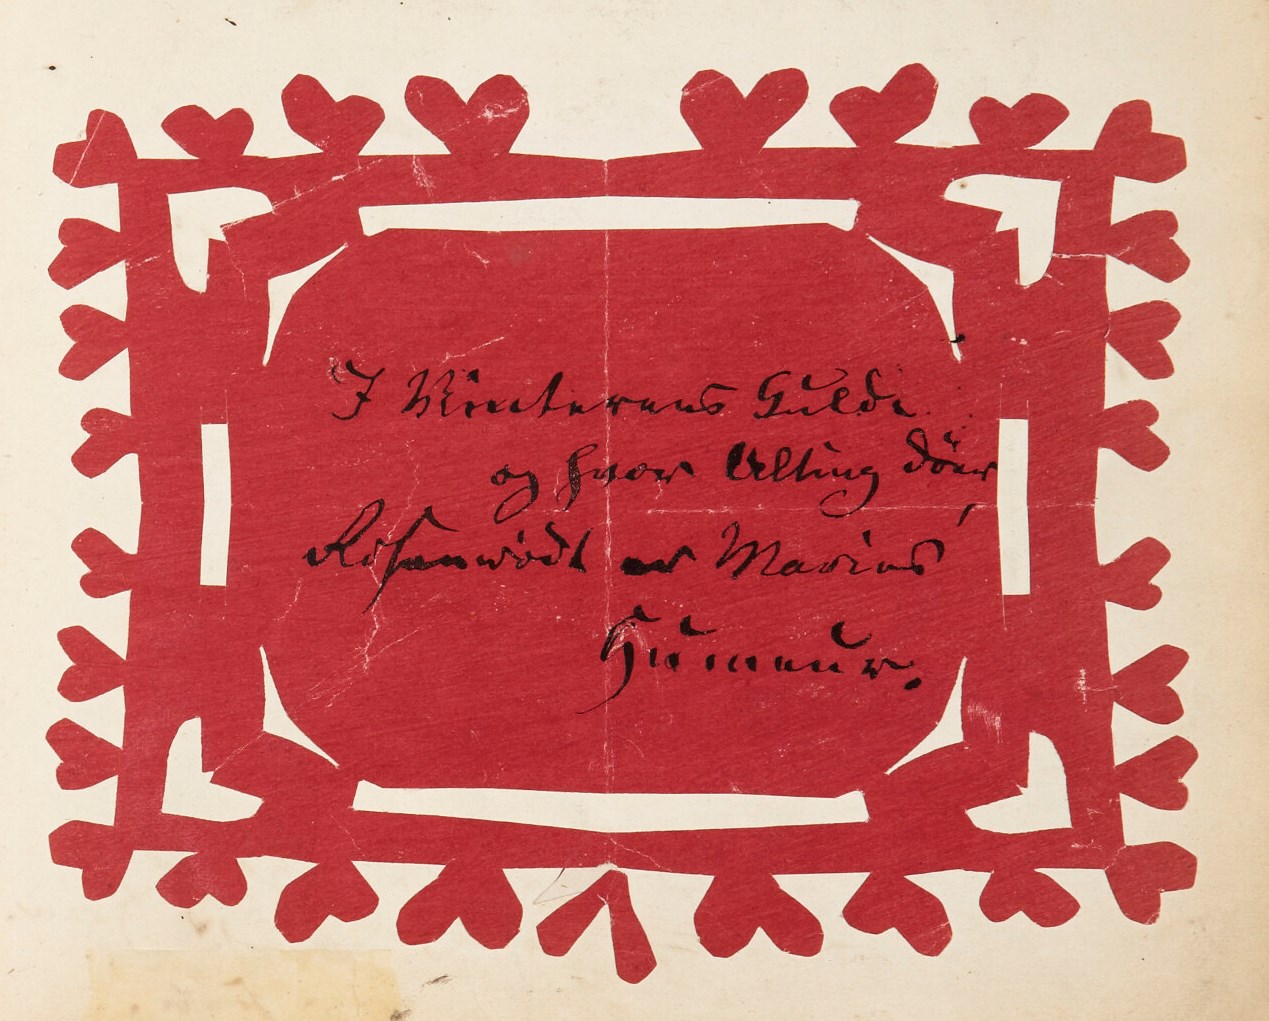 I Vinterens Kulde
og hvor Alting döer,
Rosenrödt er Maries
Humeur.